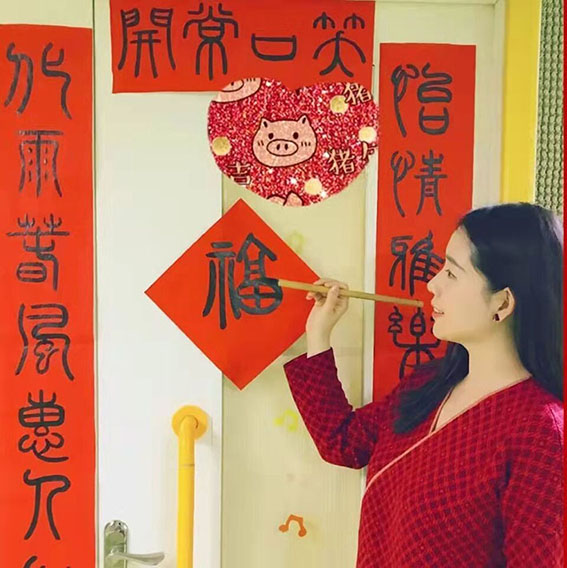 笑口常開
怡情雅樂
化雨春風惠人
福
猪
吉
猪